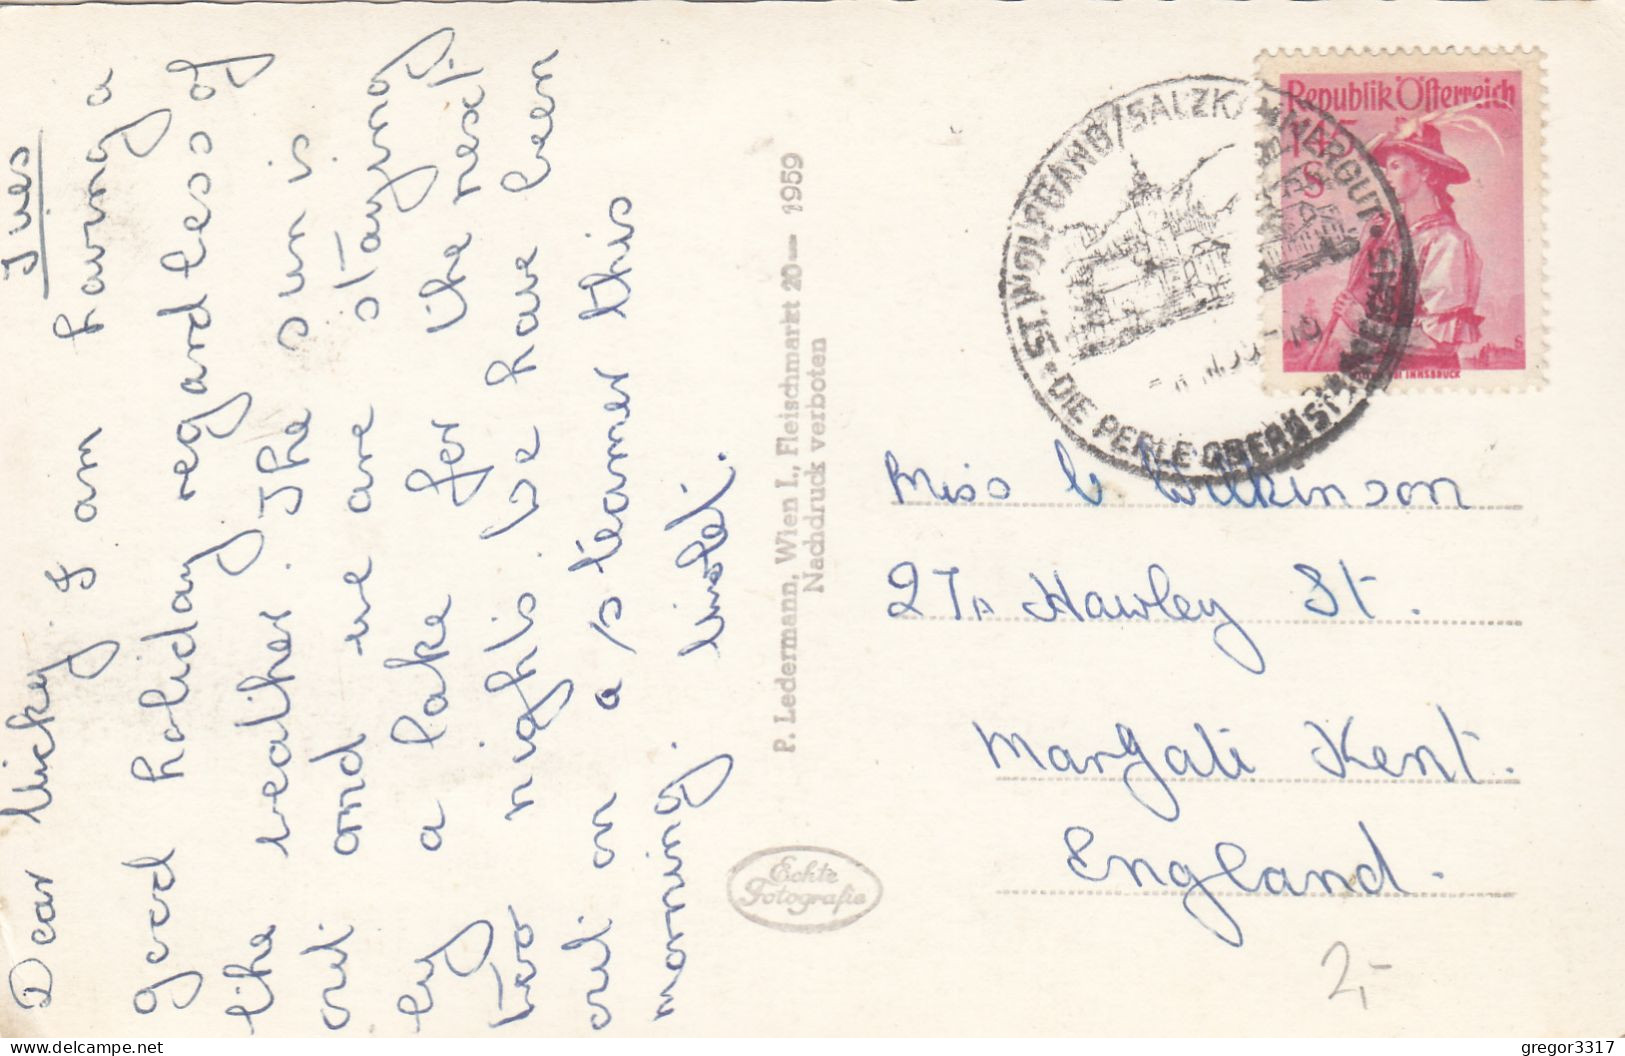 Tues
Dear Micky, I am having a
good holiday regardless of
the weather. The sun is
out and we are staying
by a lake for the next
two nights. We have been
out on a steamer this
morning. Violet.
P. Ledermann, Wien I., Fleischmarkt 20— 1959
Nachdruck verboten
Echte
Fotografie
Republik Österreich
S
INNSBRUCK
ST. WOLFGANG/SALZKAMMERGUT
DIE PERLE OBERÖSTERREICHS
Miss C Wilkinson
27A Hawley St.
Margate Kent.
England.
2,-
gregor3317